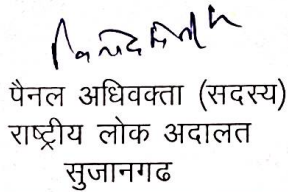 पैनल अधिवक्ता (सदस्य)
राष्ट्रीय लोक अदालत
सुजानगढ